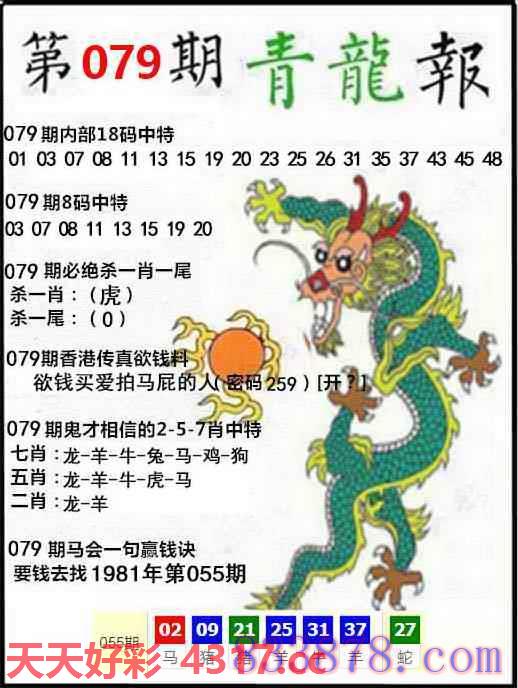 第079期 青龍報
079期内部18码中特
01 03 07 08 11 13 15 19 20 23 25 26 31 35 37 43 45 48
079期8码中特
03 07 08 11 13 15 19 20
079 期必绝杀一肖一尾
杀一肖：（虎）
杀一尾：（0）
079期香港传真欲钱料
欲钱买爱拍马屁的人(密码259)[开?]
079期鬼才相信的2-5-7肖中特
七肖：龙-羊-牛-兔-马-鸡-狗
五肖：龙-羊-牛-虎-马
二肖：龙-羊
079 期马会一句赢钱诀
要钱去找1981年第055期
055期 02 09 21 25 31 37 27
马 猪 猪 羊 牛 羊 蛇
天天好彩 4317.cc